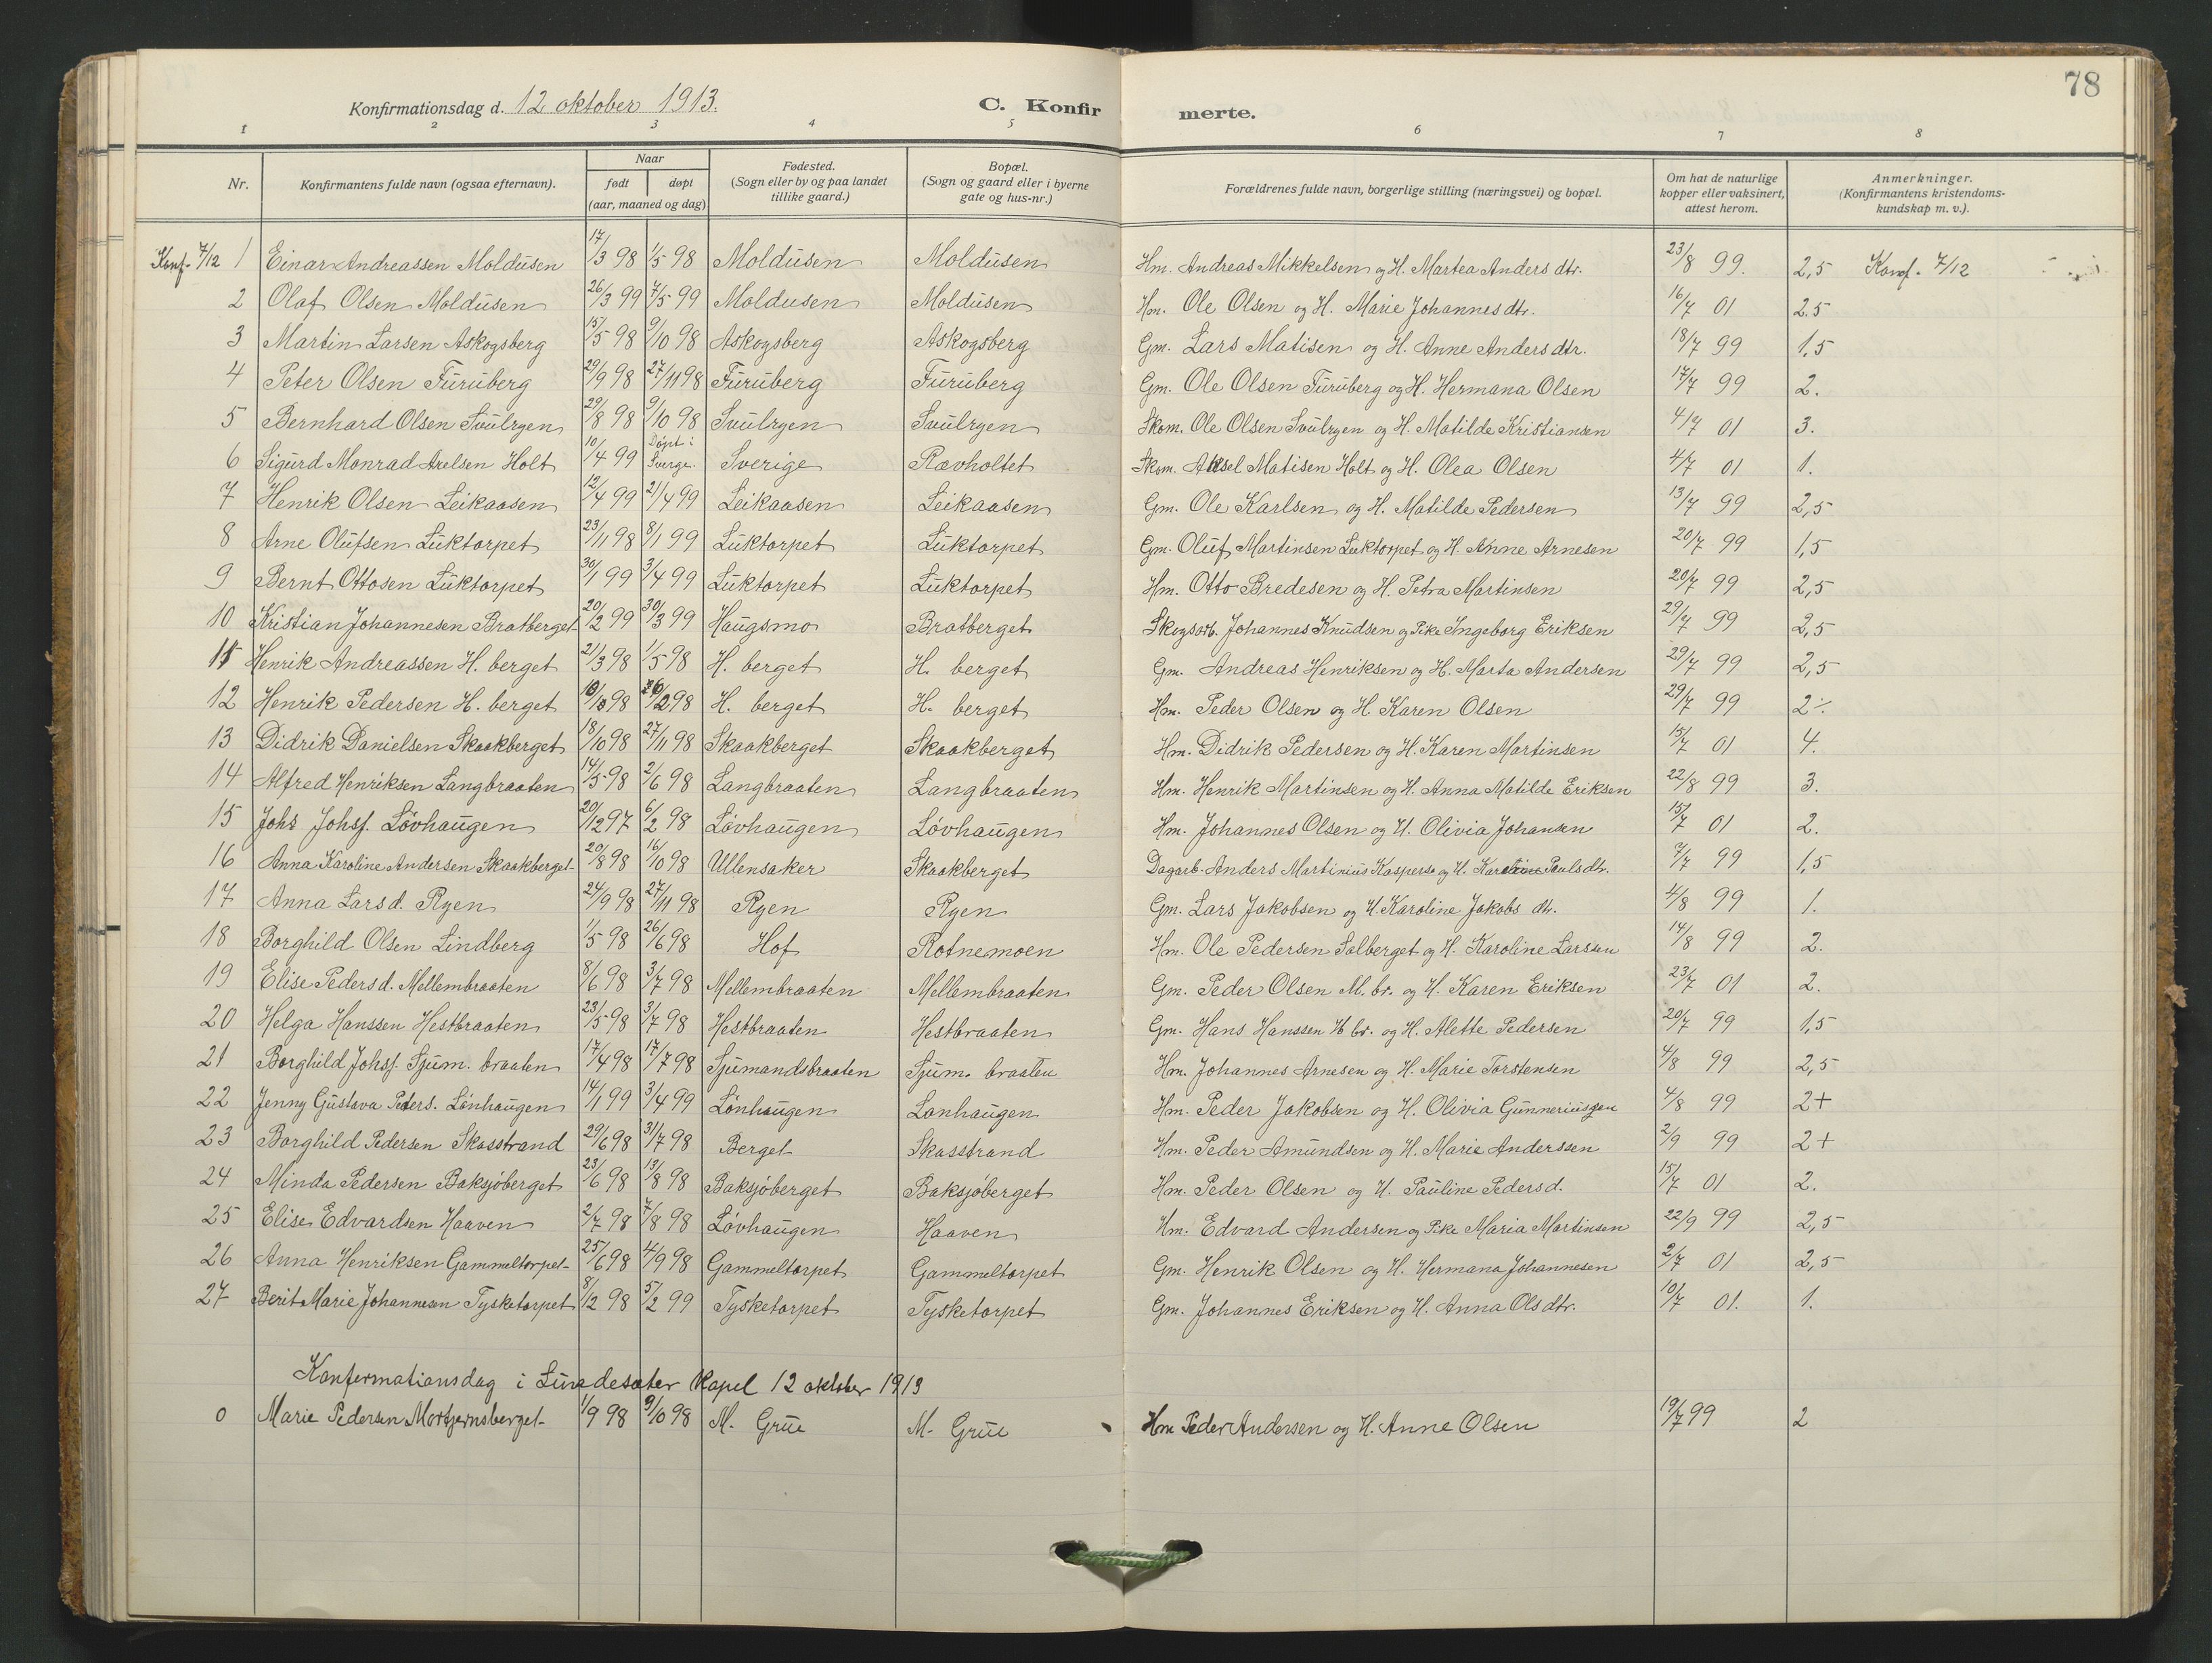 78
Konfirmationsdag d. 12 oktober 1913. C. Konfirmerte.
1 2 3 4 5 6 7 8
Nr. Konfirmantens fulde navn (ogsaa efternavn). Naar født døpt (aar, maaned og dag) Fødested. (Sogn eller by og paa landet tillike gaard.) Bopæl. (Sogn og gaard eller i byerne gate og hus-nr.) Forældrenes fulde navn, borgerlige stilling (næringsvei) og bopæl. Om hat de naturlige kopper eller vaksinert, attest herom. Anmerkninger. (Konfirmantens kristendoms- kundskap m. v.).
Konf. 7/12 1 Einar Andreassen Moldusen 17/3 98 1/5 98 Moldusen Moldusen Hm. Andreas Mikkelsen og H. Martea Anders dtr. 23/8 99. 2,5 Konf. 7/12
2 Olaf Olsen Moldusen 26/3 99 7/5 99 Moldusen Moldusen Hm. Ole Olsen og H. Marie Johannes dtr. 16/7 01 2.5
3 Martin Larsen Askogsberg 15/5 98 9/10 98 Askogsberg Askogsberg Gm. Lars Matisen og H. Anne Anders dtr. 18/7 99 1,5
4 Peter Olsen Furuberg 29/9 98 27/11 98 Furuberg Furuberg Gm. Ole Olsen Furuberg og H. Hermana Olsen 17/7 99 2.
5 Bernhard Olsen Svulryen 29/8 98 9/10 98 Svulryen Svulryen Skom. Ole Olsen Svulryen og H. Matilde Kristiansen 4/7 01 3.
6 Sigurd Monrad Axelsen Holt 10/4 99 Døpt i Sverge. Sverige Rævholtet Skom. Aksel Matisen Holt og H. Olea Olsen 4/7 01 1.
7 Henrik Olsen Leikaasen 12/4 99 21/4 99 Leikaasen Leikaasen Gm. Ole Karlsen og H. Matilde Pedersen 13/7 99 2,5
8 Arne Olufsen Luktorpet 23/11 98 8/1 99 Luktorpet Luktorpet Gm. Oluf Martinsen Luktorpet og H. Anne Arnesen 20/7 99 1,5
9 Bernt Ottosen Luktorpet 30/1 99 3/4 99 Luktorpet Luktorpet Hm. Otto Bredesen og H. Petra Martinsen 20/7 99 2,5
10 Kristian Johannesen Bratberget 20/2 99 30/3 99 Haugsmo Bratberget Skogsarb. Johannes Knudsen og Pike Ingeborg Eriksen 29/7 99 2,5
11 Henrik Andreassen H. berget 21/3 98 1/5 98 H. berget H. berget Gm. Andreas Henriksen og H. Marta Andersen 29/7 99 2,5
12 Henrik Pedersen H. berget 98 98 H. berget H. berget Hm. Peder Olsen og H. Karen Olsen 29/7 99 2÷
13 Didrik Danielsen Skaakberget 18/10 98 27/11 98 Skaakberget Skaakberget Hm. Didrik Pedersen og H. Karen Martinsen 15/7 01 4.
14 Alfred Henriksen Langbraaten 14/5 98 2/6 98 Langbraaten Langbraaten Hm. Henrik Martinsen og H. Anna Matilde Eriksen 22/8 99 3.
15 Johs Johsf. Lövhaugen 20/12 97 6/2 98 Lövhaugen Lövhaugen Hm. Johannes Olsen og H. Olivia Johansen 15/7 01 2.
16 Anna Karoline Andersen Skaakberget 20/8 98 16/10 98 Ullensaker Skaakberget Dagarb. Anders Martinius Kaspers. og H. Paulsdtr. 7/7 99 1,5
17 Anna Larsd. Ryen 24/9 98 27/11 98 Ryen Ryen Gm. Lars Jakobsen og H. Karoline Jakobs dtr. 4/8 99 1.
18 Borghild Olsen Lindberg 1/5 98 26/6 98 Hof Rotnemoen Hm. Ole Pedersen Salberget og H. Karoline Larssen 14/8 99 2.
19 Elise Pedersd. Mellembraaten 8/6 98 3/7 98 Mellembraaten Mellembraaten Gm. Peder Olsen M. br. og H. Karen Eriksen 23/7 01 2.
20 Helga Hanssen Hestbraaten 23/5 98 3/7 98 Hestbraaten Hestbraaten Gm. Hans Hanssen H br. og H. Alette Pedersen 20/7 99 1,5
21 Borghild Johsf. Sjum. braaten 17/4 98 17/7 98 Sjumandsbraaten Sjum. braaten Hm. Johannes Arnesen og H. Marie Torstensen 4/8 99 2,5
22 Jenny Gustava Peders. Lönhaugen 14/1 99 3/4 99 Lönhaugen Lönhaugen Hm. Peder Jakobsen og H. Olivia Gunneriusgen 4/8 99 2+
23 Borghild Pedersen Skasstrand 29/6 98 31/7 98 Berget Skasstrand Hm. Peder Amundsen og H. Marie Anderssen 2/9 99 2+
24 Minda Pedersen Baksjöberget 23/6 98 13/8 98 Baksjöberget Baksjöberget Hm. Peder Olsen og H. Pauline Pedersd. 15/7 01 2.
25 Elise Edvardsen Haaven 2/7 98 7/8 98 Lövhaugen Haaven Hm. Edvard Andersen og Pike Maria Martinsen 22/9 99 2,5
26 Anna Henriksen Gammeltorpet 25/6 98 4/9 98 Gammeltorpet Gammeltorpet Gm. Henrik Olsen og H. Hermana Johannesen 2/7 01 2,5
27 Berit Marie Johannesen Tysketorpet 8/12 98 5/2 99 Tysketorpet Tysketorpet Gm. Johannes Eriksen og H. Anna Ols dtr. 10/7 01. 1.
Konfermationsdag i Lundesæter Kapel 12 oktober 1913
0 Marie Pedersen Mortjernsberget 1/9 98 9/10 98 M. Grue M. Grue Hm Peder Andersen og H. Anne Olsen 19/7 99 2